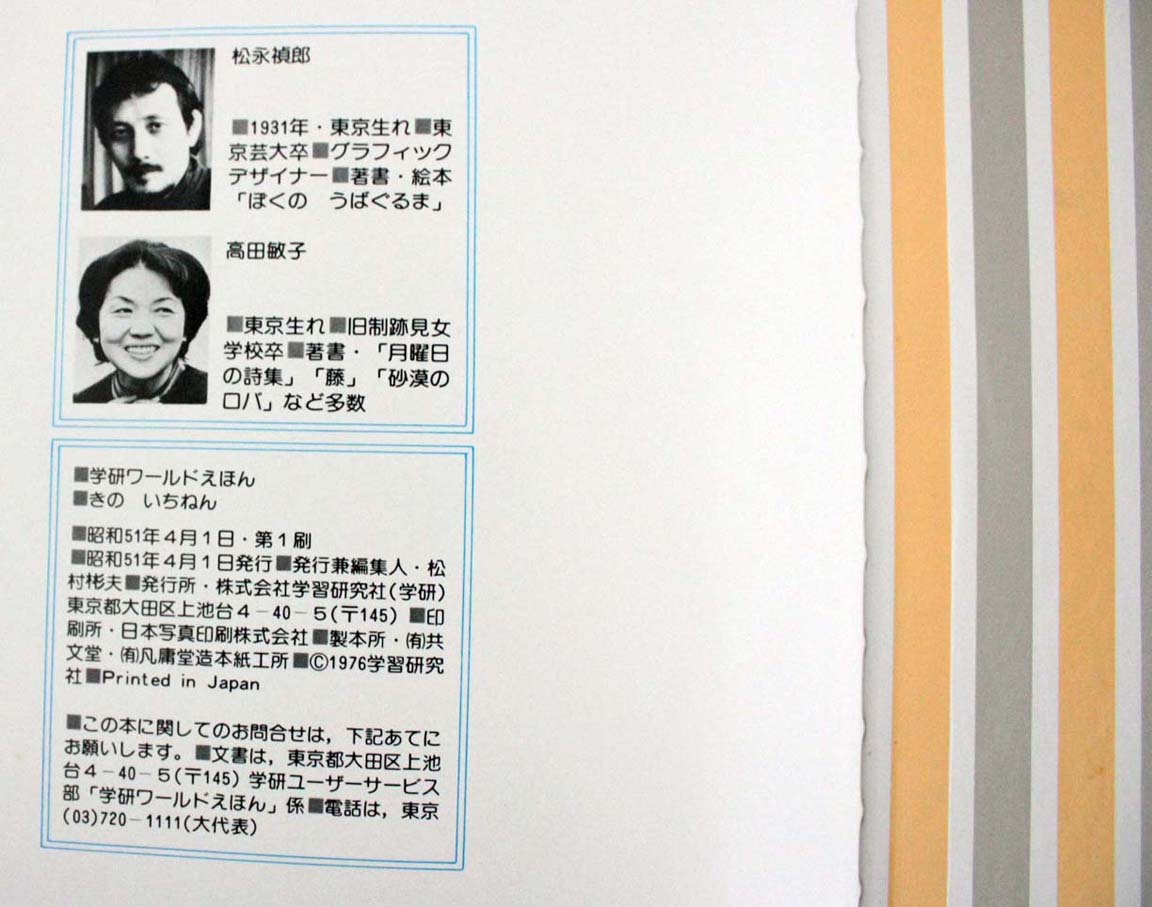 松永禎郎
■1931年・東京生れ■東
京芸大卒■グラフィック
デザイナー■著書・絵本
「ぼくの　うばぐるま」
高田敏子
■東京生れ■旧制跡見女
学校卒■著書・「月曜日
の詩集」「藤」「砂漠の
ロバ」など多数
■学研ワールドえほん
■きの　いちねん
■昭和51年4月1日・第1刷
■昭和51年4月1日発行■発行兼編集人・松
村彬夫■発行所・株式会社学習研究社(学研)
東京都大田区上池台4－40－5(〒145) ■印
刷所・日本写真印刷株式会社■製本所・㈲共
文堂・㈲凡庸堂造本紙工所■©1976学習研究
社■Printed in Japan
■この本に関してのお問合せは，下記あてに
お願いします。■文書は，東京都大田区上池
台4－40－5(〒145) 学研ユーザーサービス
部「学研ワールドえほん」係■電話は，東京
(03)720－1111(大代表)